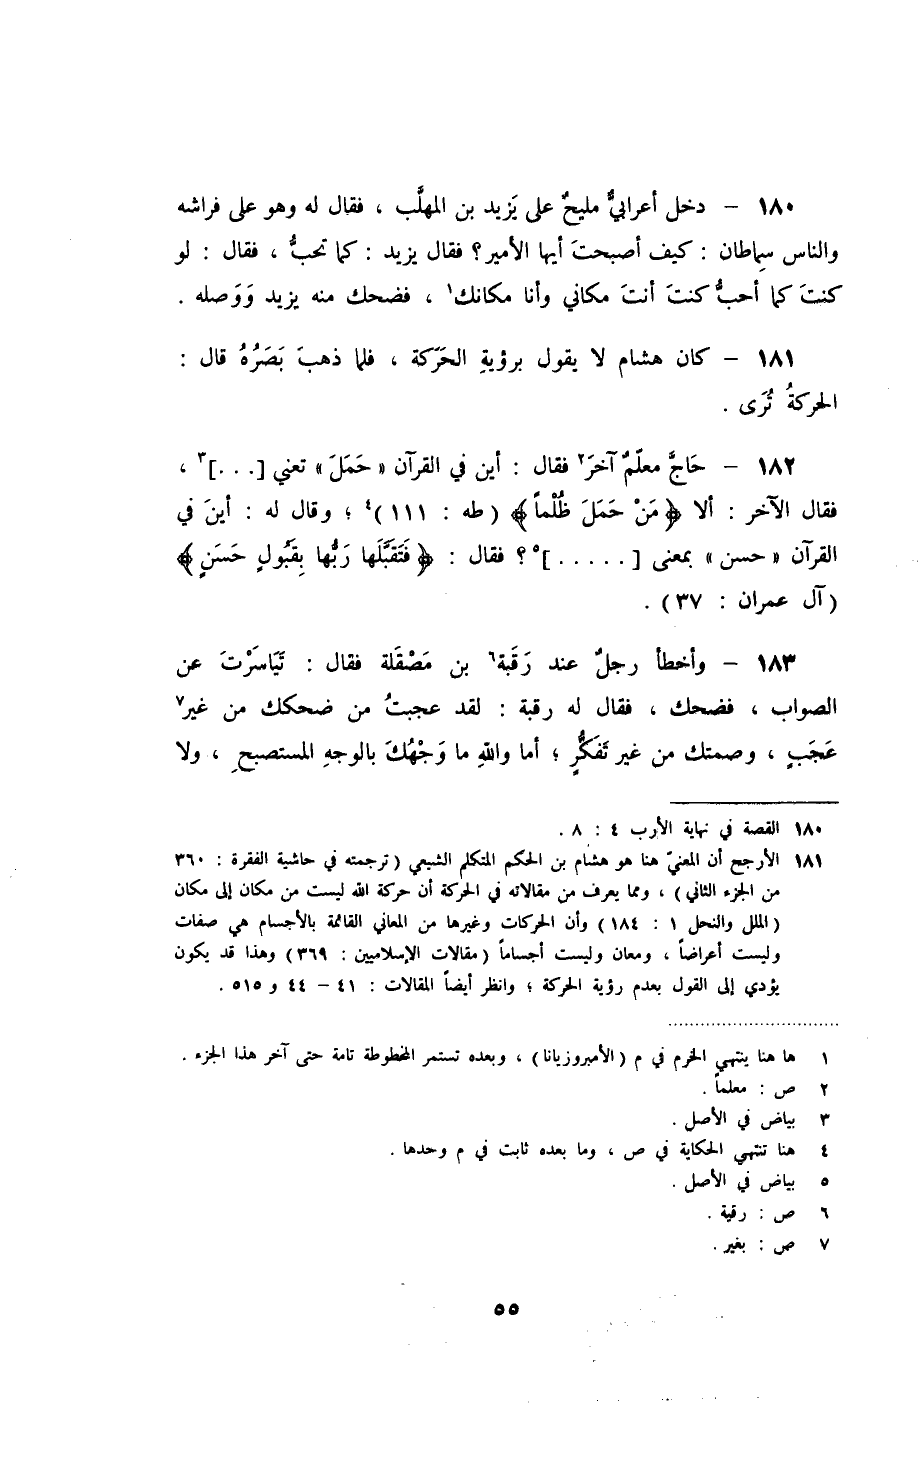 ١٨٠ – دخل أعرابيٌّ مليحٌ على يَزيد بن المهلَّب ، فقال له وهو على فراشه
والناس سِماطان : كيف أصبحتَ أيها الأمير؟ فقال يزيد : كما تحبُّ ، فقال : لو
كنتَ كما أحبُّ كنتَ أنتَ مكاني وأنا مكانك١ ، فضحك منه يزيد وَوَصله .
١٨١ – كان هشام لا يقول برؤيةِ الحَرَكة ، فلما ذهبَ بَصَرُهُ قال :
الحركةُ تُرَى .
١٨٢ – حَاجَّ معلّمٌ آخرَ٢ فقال : أين في القرآن «حَمَلَ» تعني [. . .]٣ ،
فقال الآخر : ألا ﴿مَنْ حَمَلَ ظُلْماً﴾ (طه : ١١١)٤ ؛ وقال له : أينَ في
القرآن «حسن» بمعنى [. . . . .]٥؟ فقال : ﴿فَتَقَبَّلَها رَبُّها بِقَبُولٍ حَسَنٍ﴾
(آل عمران : ٣٧) .
١٨٣ – وأخطأ رجلٌ عند رَقَبة٦ بن مَصْقَلة فقال : تَيَاسَرْتَ عن
الصواب ، فضحك ، فقال له رقبة : لقد عجبتُ من ضحكك من غير٧
عَجَبٍ ، وصمتك من غير تَفَكُّرٍ ؛ أما واللهِ ما وَجْهُكَ بالوجهِ المستصبحِ ، ولا
١٨٠ القصة في نهاية الأرب ٤ : ٨ .
١٨١ الأرجح أن المعنيّ هنا هو هشام بن الحكم المتكلم الشيعي (ترجمته في حاشية الفقرة : ٣٦٠
من الجزء الثاني) ، ومما يعرف من مقالاته في الحركة أن حركة الله ليست من مكان إلى مكان
(الملل والنحل ١ : ١٨٤) وأن الحركات وغيرها من المعاني القائمة بالأجسام هي صفات
وليست أعراضاً ، ومعان وليست أجساماً (مقالات الإسلاميين : ٣٦٩) وهذا قد يكون
يؤدي إلى القول بعدم رؤية الحركة ؛ وانظر أيضاً المقالات : ٤١ – ٤٤ و ٥١٥ .
١ ها هنا ينتهي الخرم في م (الأمبروزيانا) ، وبعده تستمر المخطوطة تامة حتى آخر هذا الجزء .
٢ ص : معلماً .
٣ بياض في الأصل .
٤ هنا تنتهي الحكاية في ص ، وما بعده ثابت في م وحدها .
٥ بياض في الأصل .
٦ ص : رقية .
٧ ص : بغير .
٥٥